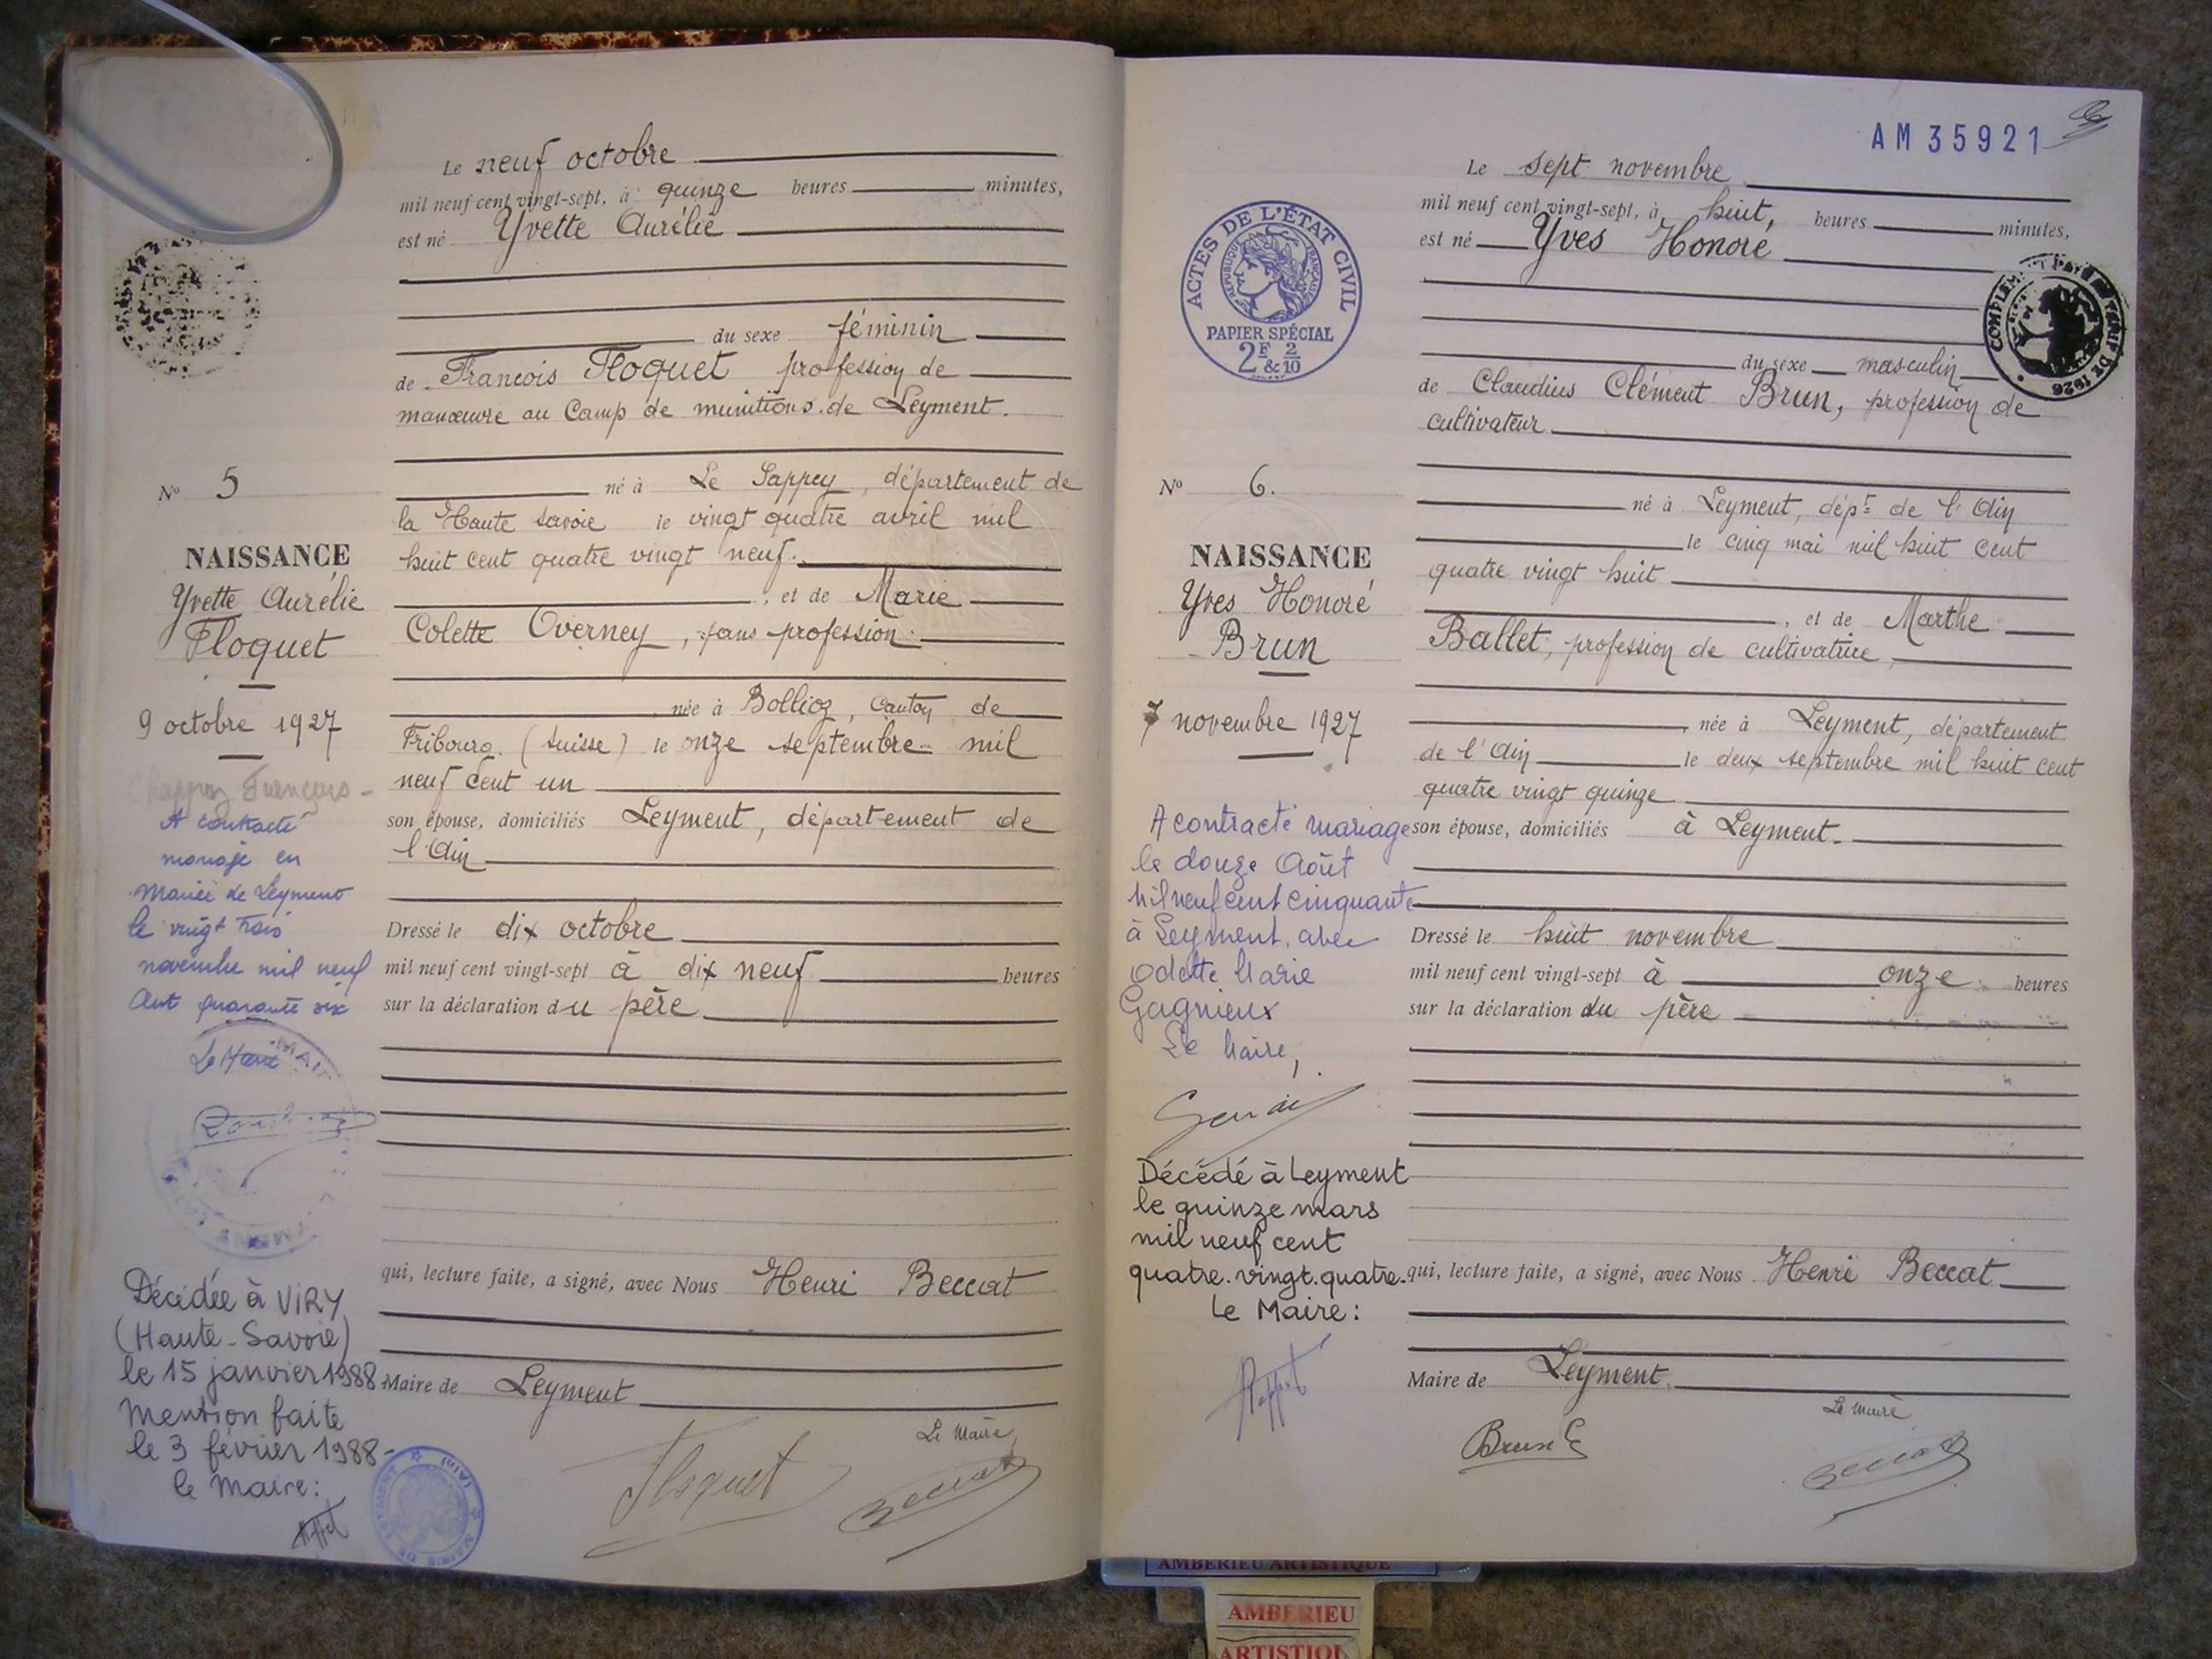 Le neuf octobre
mil neuf cent vingt-sept, à quinze heures minutes,
est né Yvette Aurélie
du sexe féminin
de François Floquet profession de
manœuvre au Camp de munitions de Leyment.
né à Le Sappey, département de
la Haute Savoie le vingt quatre avril mil
huit cent quatre vingt neuf.
, et de Marie
Colette Overney, sans profession.
née à Bollioz, Canton de
Fribourg. (Suisse) le onze septembre mil
neuf cent un
son épouse, domiciliés Leyment, département de
l'Ain
Dressé le dix octobre
mil neuf cent vingt-sept à dix neuf heures
sur la déclaration du père
qui, lecture faite, a signé, avec Nous Henri Beccat
Maire de Leyment
Le Maire
Floquet
Beccat
No 5
NAISSANCE
Yvette Aurélie
Floquet
9 octobre 1927
François
A contracté
mariage en
Mairie de Leyment
le vingt trois
novembre mil neuf
cent quarante six
Le Maire
Décédée à VIRY
(Haute-Savoie)
le 15 janvier 1988
Mention faite
le 3 février 1988-
le Maire:
AM 35921
ACTES DE L'ÉTAT CIVIL
RÉPUBLIQUE FRANÇAISE
PAPIER SPÉCIAL
2F & 2/10
COMPLEMENT TARIF DE 1926
Le sept novembre
mil neuf cent vingt-sept, à huit, heures minutes,
est né Yves Honoré
du sexe masculin
de Claudius Clément Brun, profession de
cultivateur
né à Leyment, dépt de l'Ain
le cinq mai mil huit cent
quatre vingt huit
, et de Marthe
Ballet, profession de cultivatrice,
née à Leyment, département
de l'Ain le deux septembre mil huit cent
quatre vingt quinze
son épouse, domiciliés à Leyment.
Dressé le huit novembre
mil neuf cent vingt-sept à onze heures
sur la déclaration du père
qui, lecture faite, a signé, avec Nous Henri Beccat
Maire de Leyment.
Le Maire
Brun C
Beccat
No 6.
NAISSANCE
Yves Honoré
Brun
7 novembre 1927
A contracté mariage
le douze Août
mil neuf cent cinquante
à Leyment. avec
Odette Marie
Gagnieux
Le Maire,
Décédé à Leyment
le quinze mars
mil neuf cent
quatre.vingt.quatre-
Le Maire:
AMBERIEU ARTISTIQUE
AMBERIEU